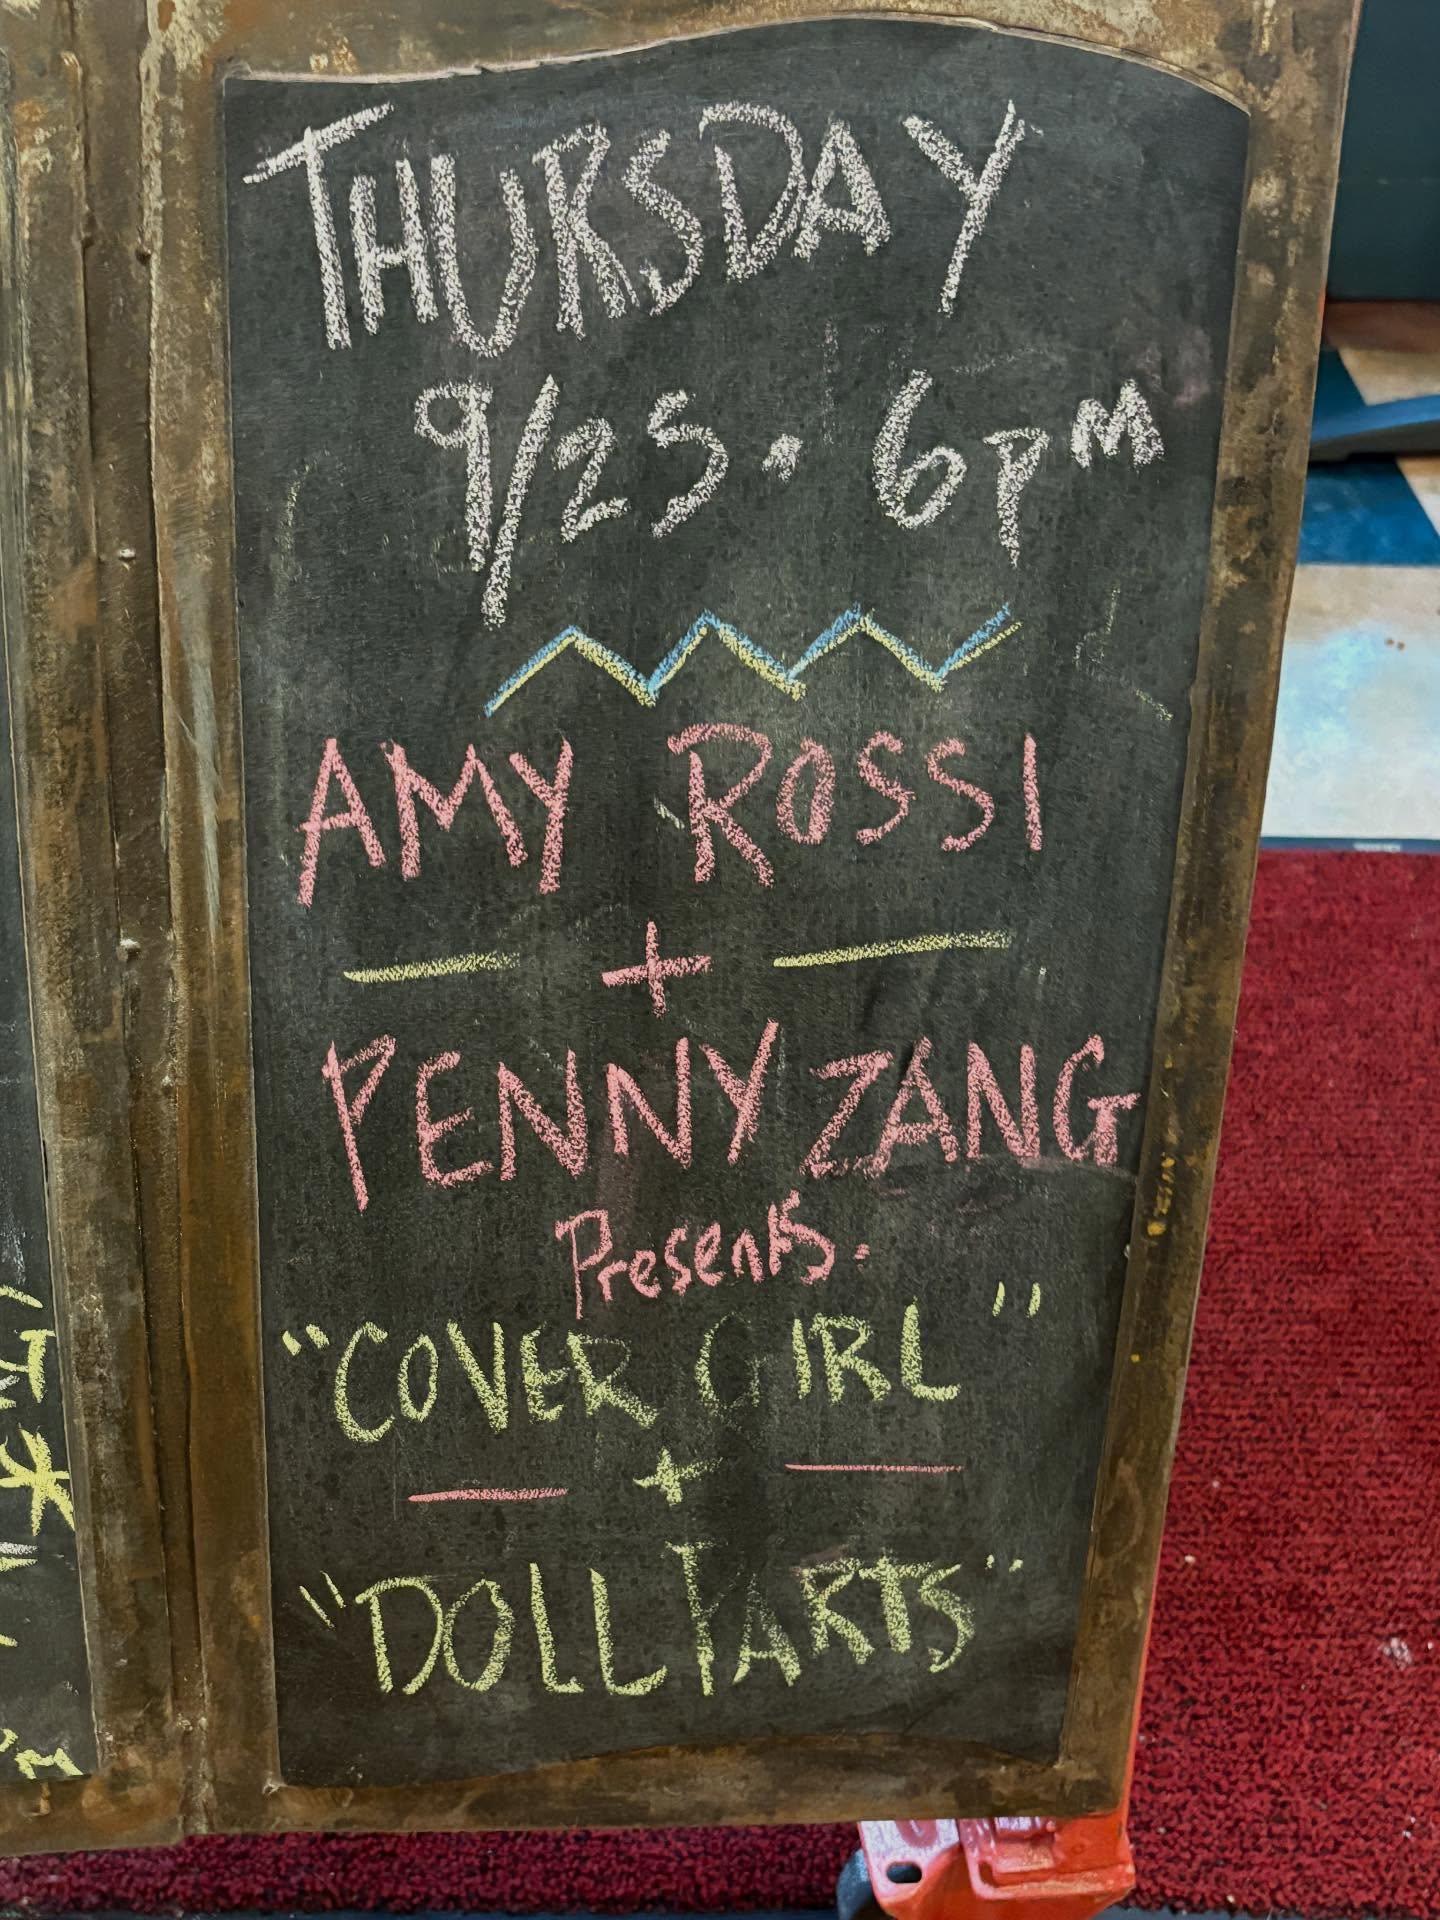 THURSDAY
9/25. 6PM
AMY ROSSI
+
PENNY ZANG
Presents.
"COVER GIRL"
+
"DOLL PARTS"